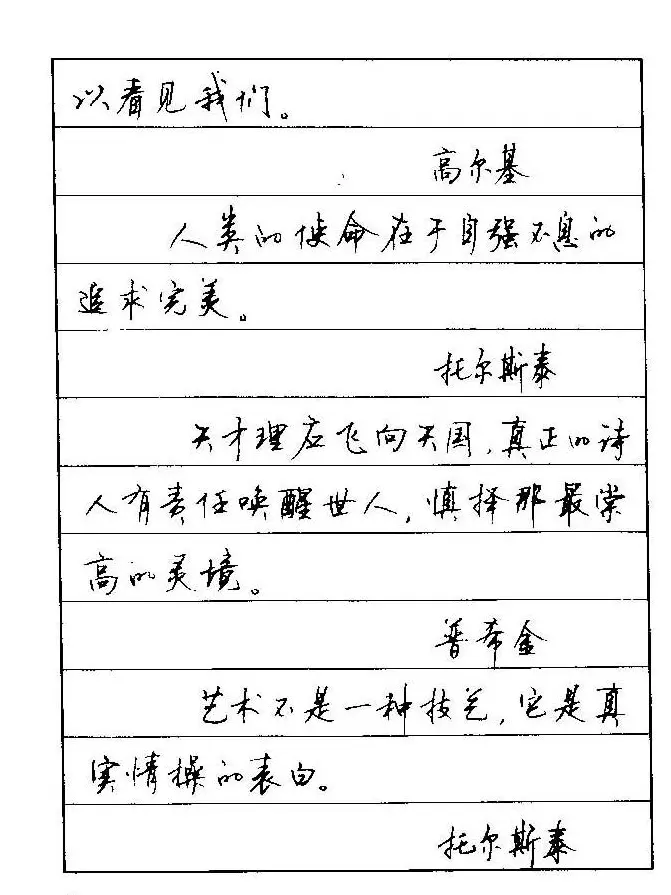 以看见我们。
高尔基
人类的使命在于自强不息的
追求完美。
托尔斯泰
天才理应飞向天国,真正的诗
人有责任唤醒世人,慎择那最崇
高的灵境。
普希金
艺术不是一种技艺,它是真
实情操的表白。
托尔斯泰